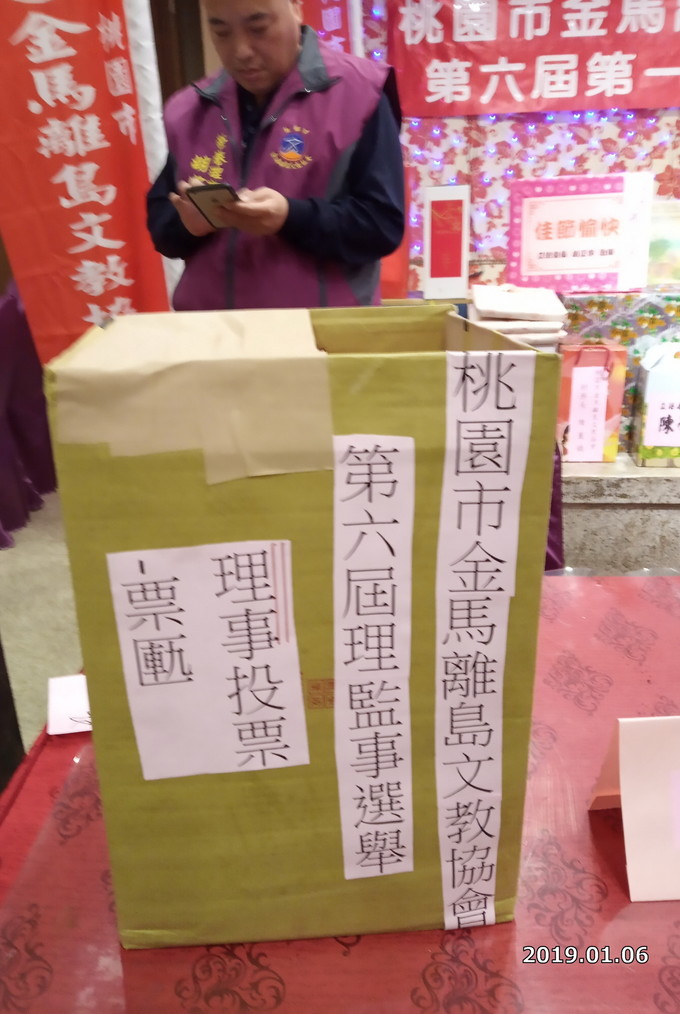 桃園市
金馬離島文教協
桃園市金馬
第六屆第一
佳節愉快
陳
桃園市金馬離島文教協會
第六屆理監事選舉
理事投票
-票匭
2019.01.06